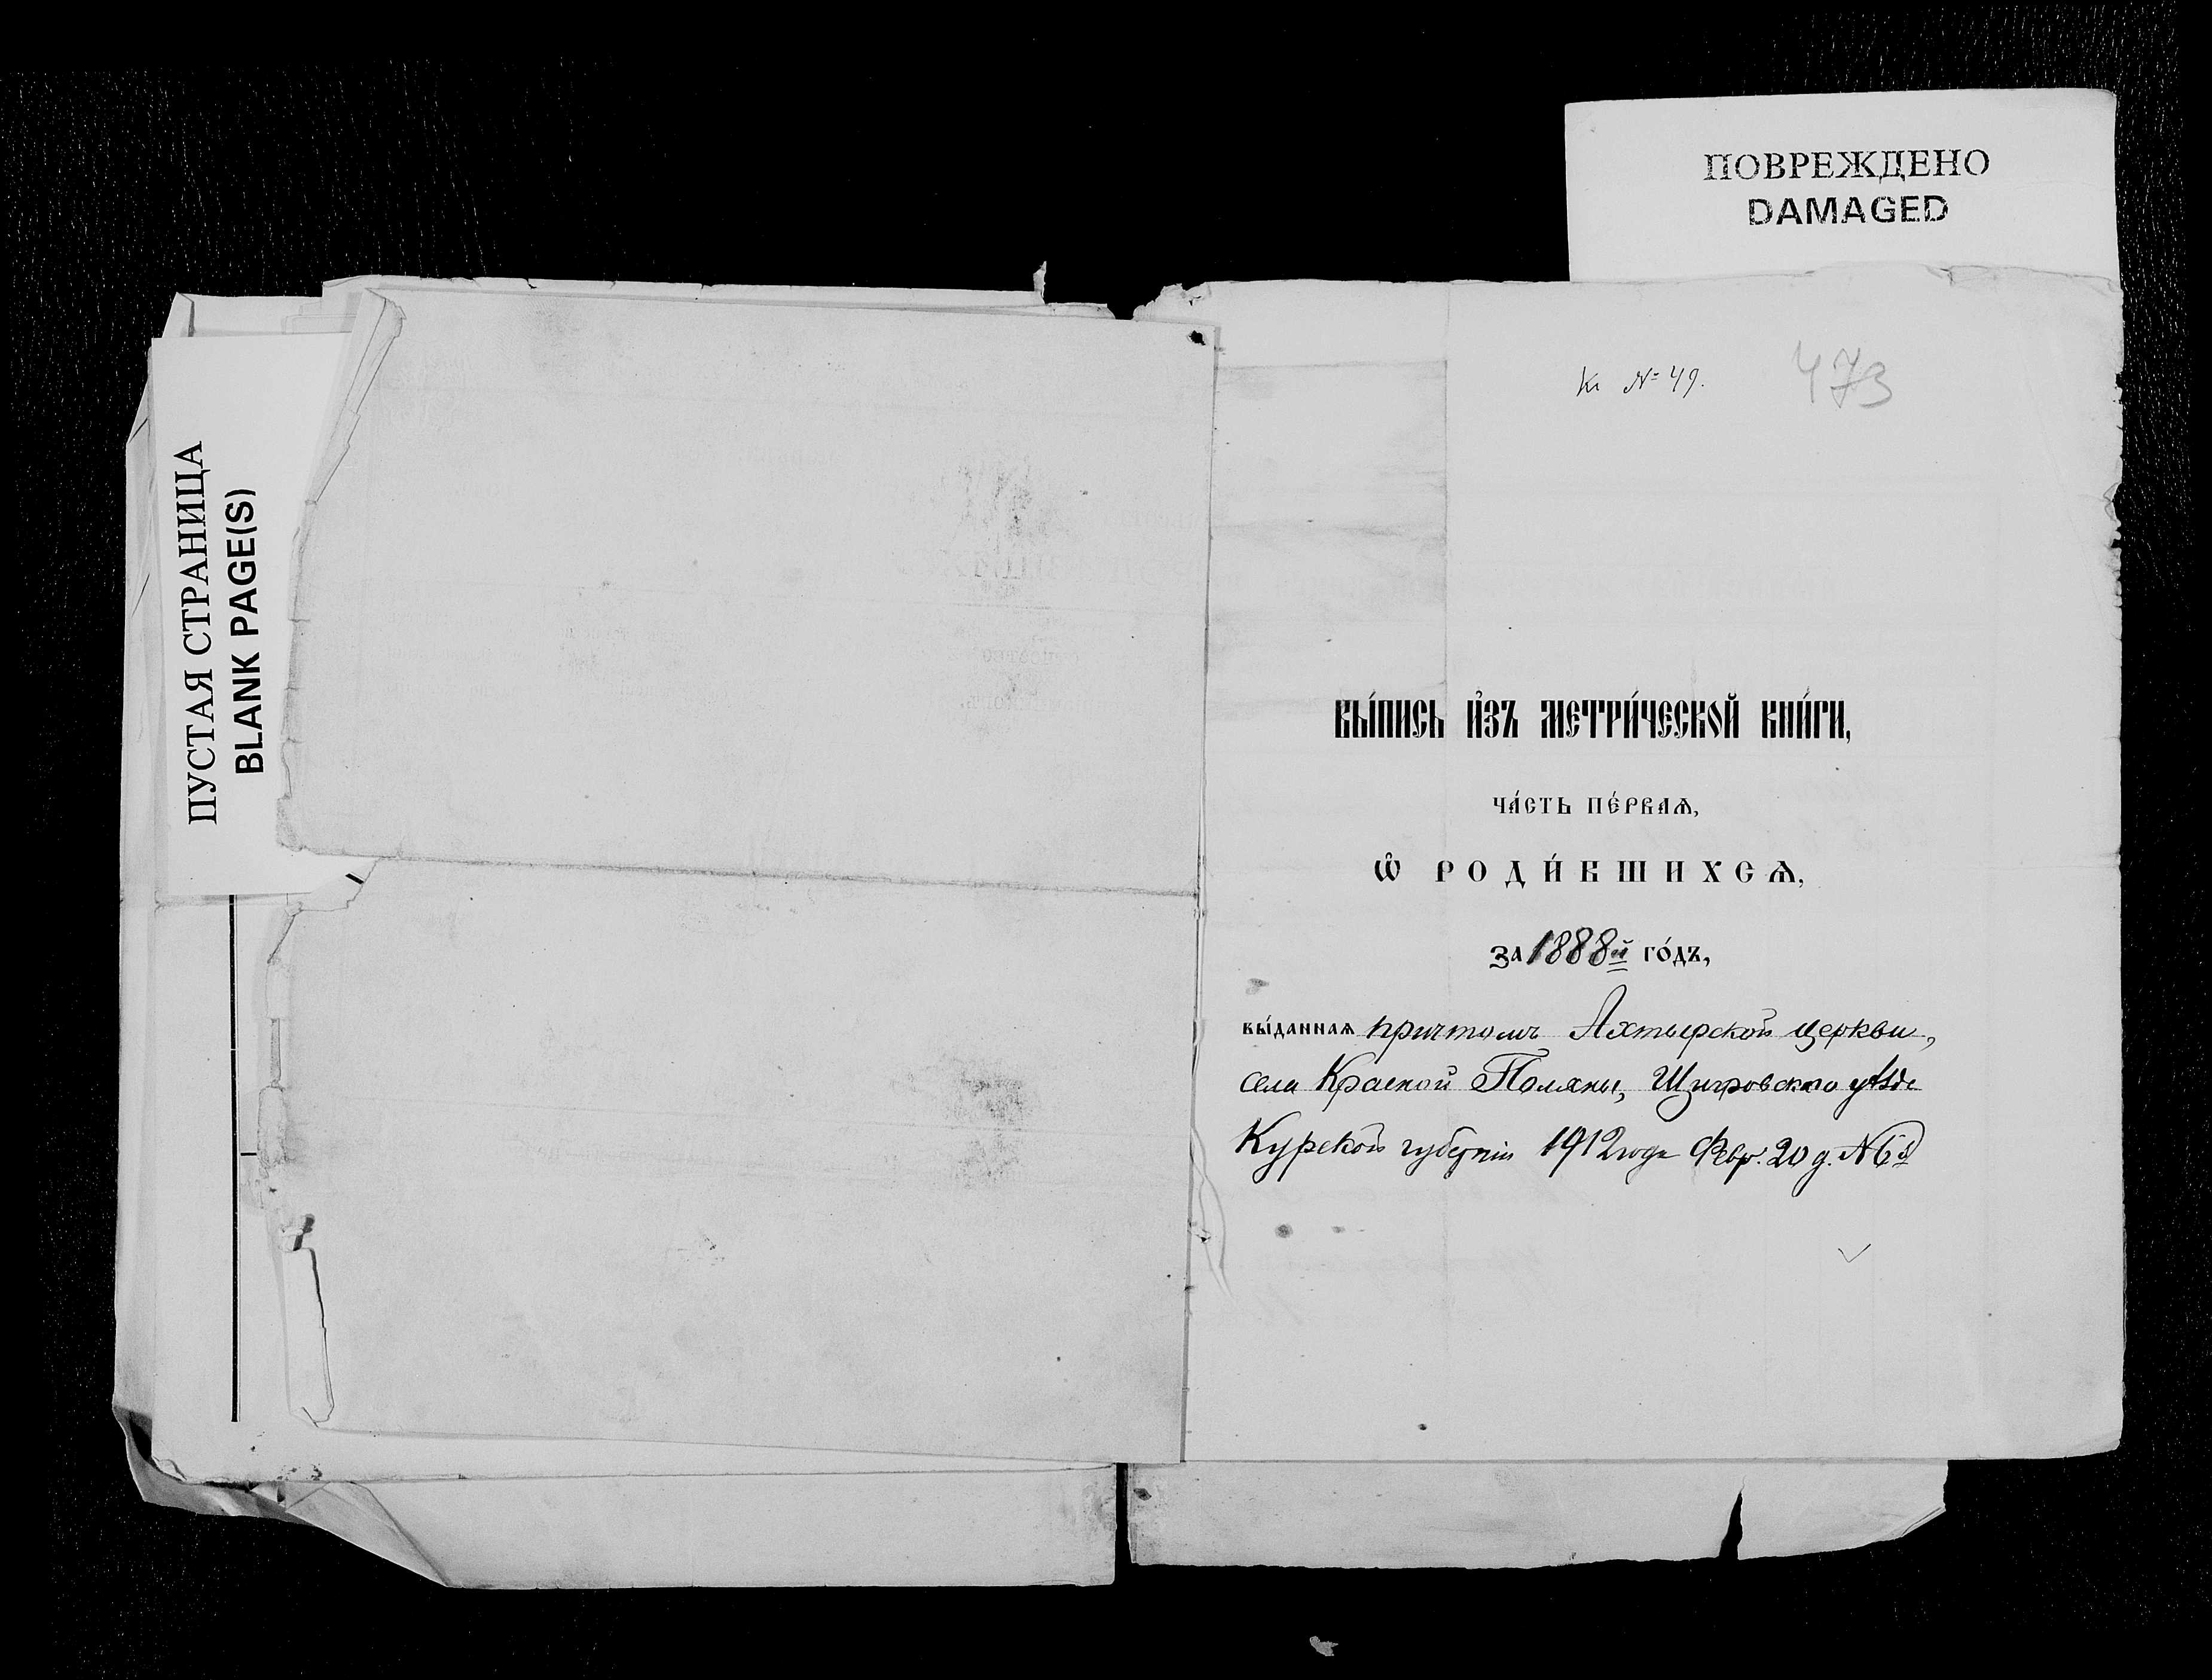 ПОВРЕЖДЕНО
DAMAGED
ПУСТАЯ СТРАНИЦА
BLANK PAGE(S)
№ 49.
473
ВЫ́ПИСЬ И҆ЗЪ МЕТРИ́ЧЕСКОЙ КНИ́ГИ,
ЧА́СТЬ ПЕ́РВАѦ,
Ѽ РОДИ́ВШИХСѦ,
За 1888й го́дъ,
вы́даннаѧ причтомъ Ахтырской церкви,
села Красной Поляны, Щигровскаго уѣзда
Курской губерніи 1912 года Февр. 20 д. №